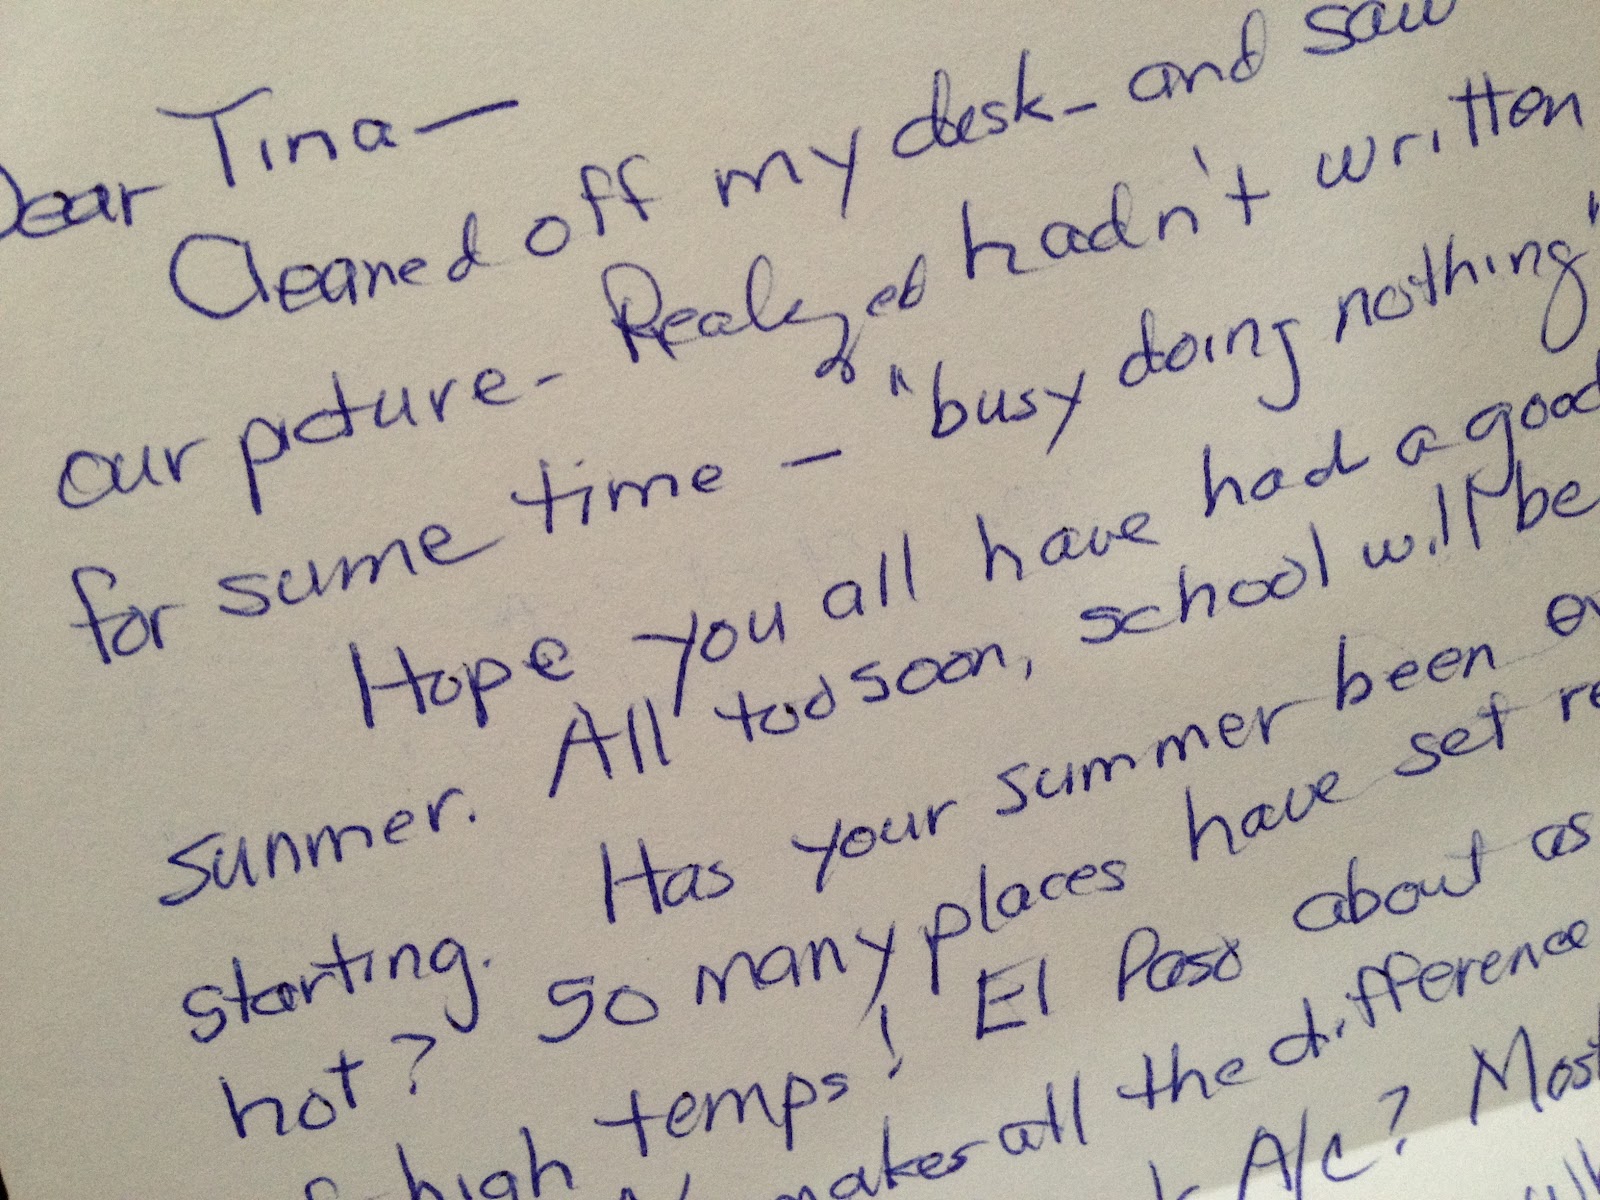 Dear Tina—
Cleaned off my desk– and saw
our picture– Realized hadn't written
for some time – "busy doing nothing"
Hope you all have had a good
summer. All too soon, school will be
starting. Has your summer been
hot? So many places have set
high temps! El Paso about as
makes all the difference
A/c? Most